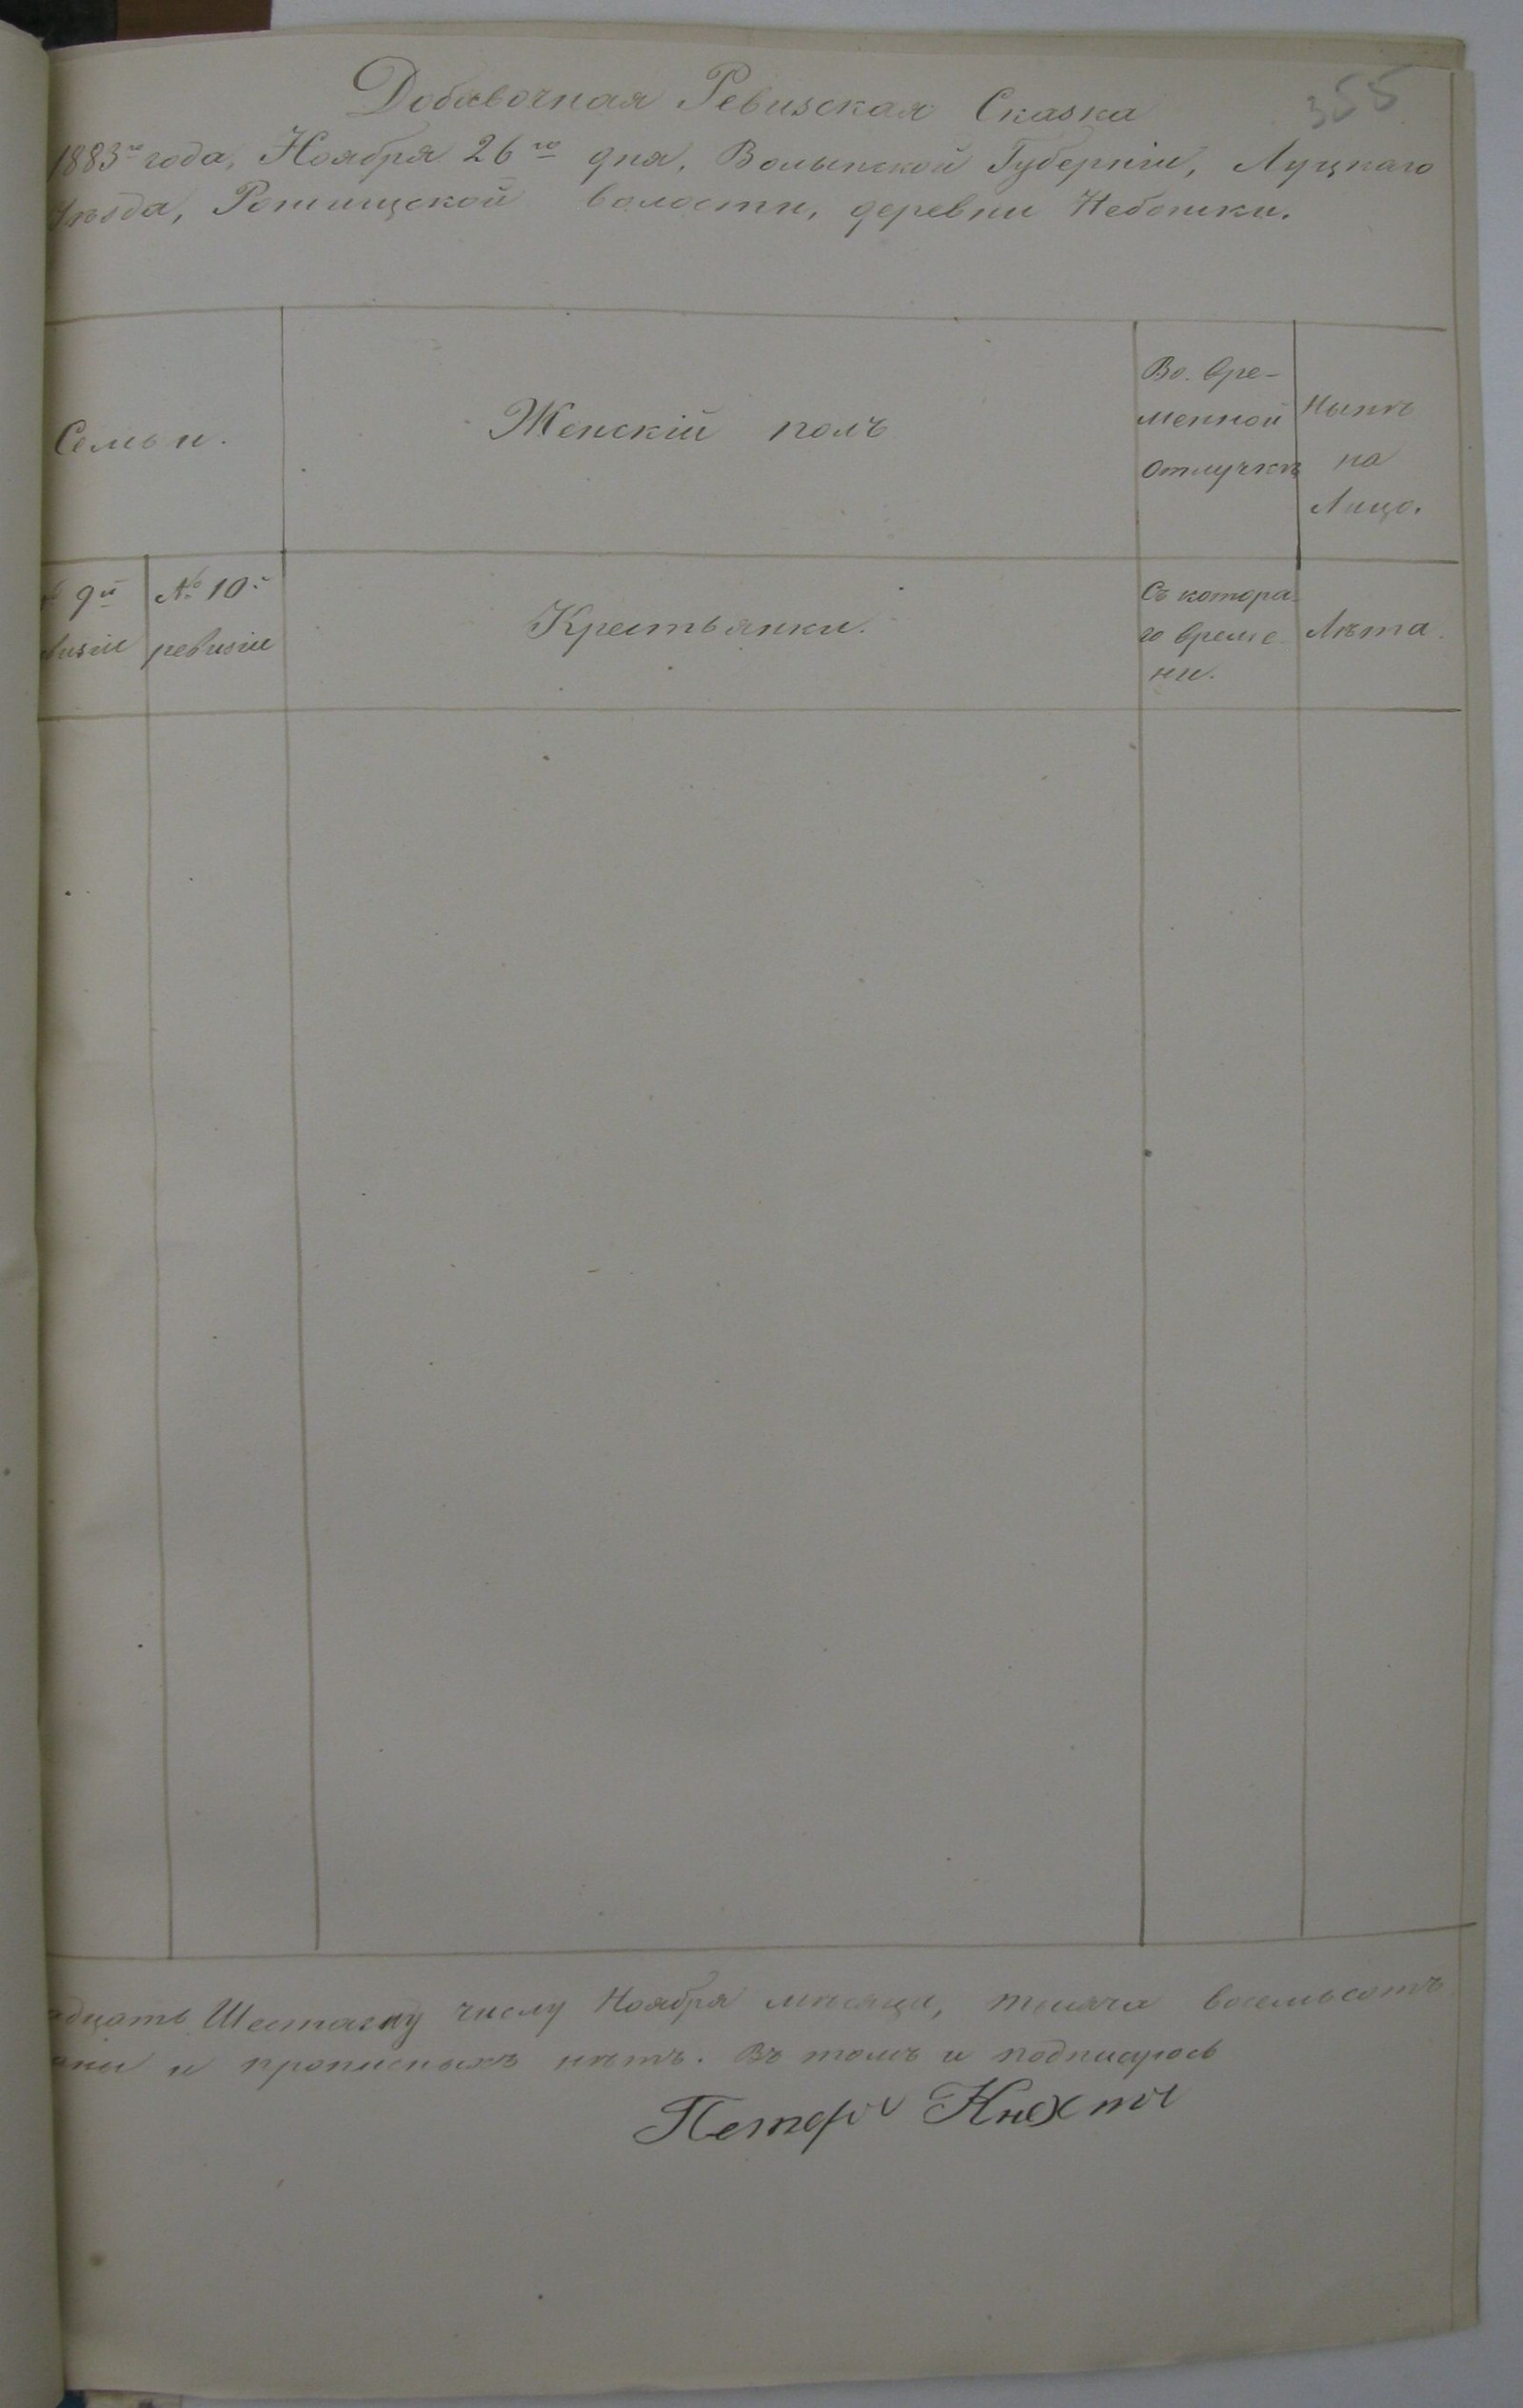 355
Добавочная Ревизская Сказка
1883го года, Ноября 26го дня, Волынской Губерніи, Луцкаго
Уѣзда, Рожищской волости, деревни Небожки.
Семьи.
Женскій полъ
Во. вре-
менной
отлучкѣ
Нынѣ
на
Лицо.
№ 9й
№ 10й
ревизіи
Крестьянки.
Съ котора-
го време-
ни.
Лѣта.
Шестому числу Ноября мѣсяца, тысяча восемьсотъ
и прописныхъ нѣтъ. Въ томъ и подписуюсь
Петеръ Кнехтъ